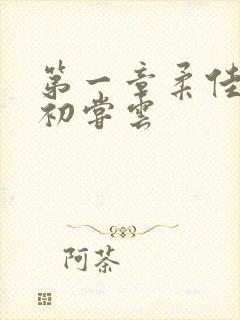 第一章柔佳
初尝雲
阿茶